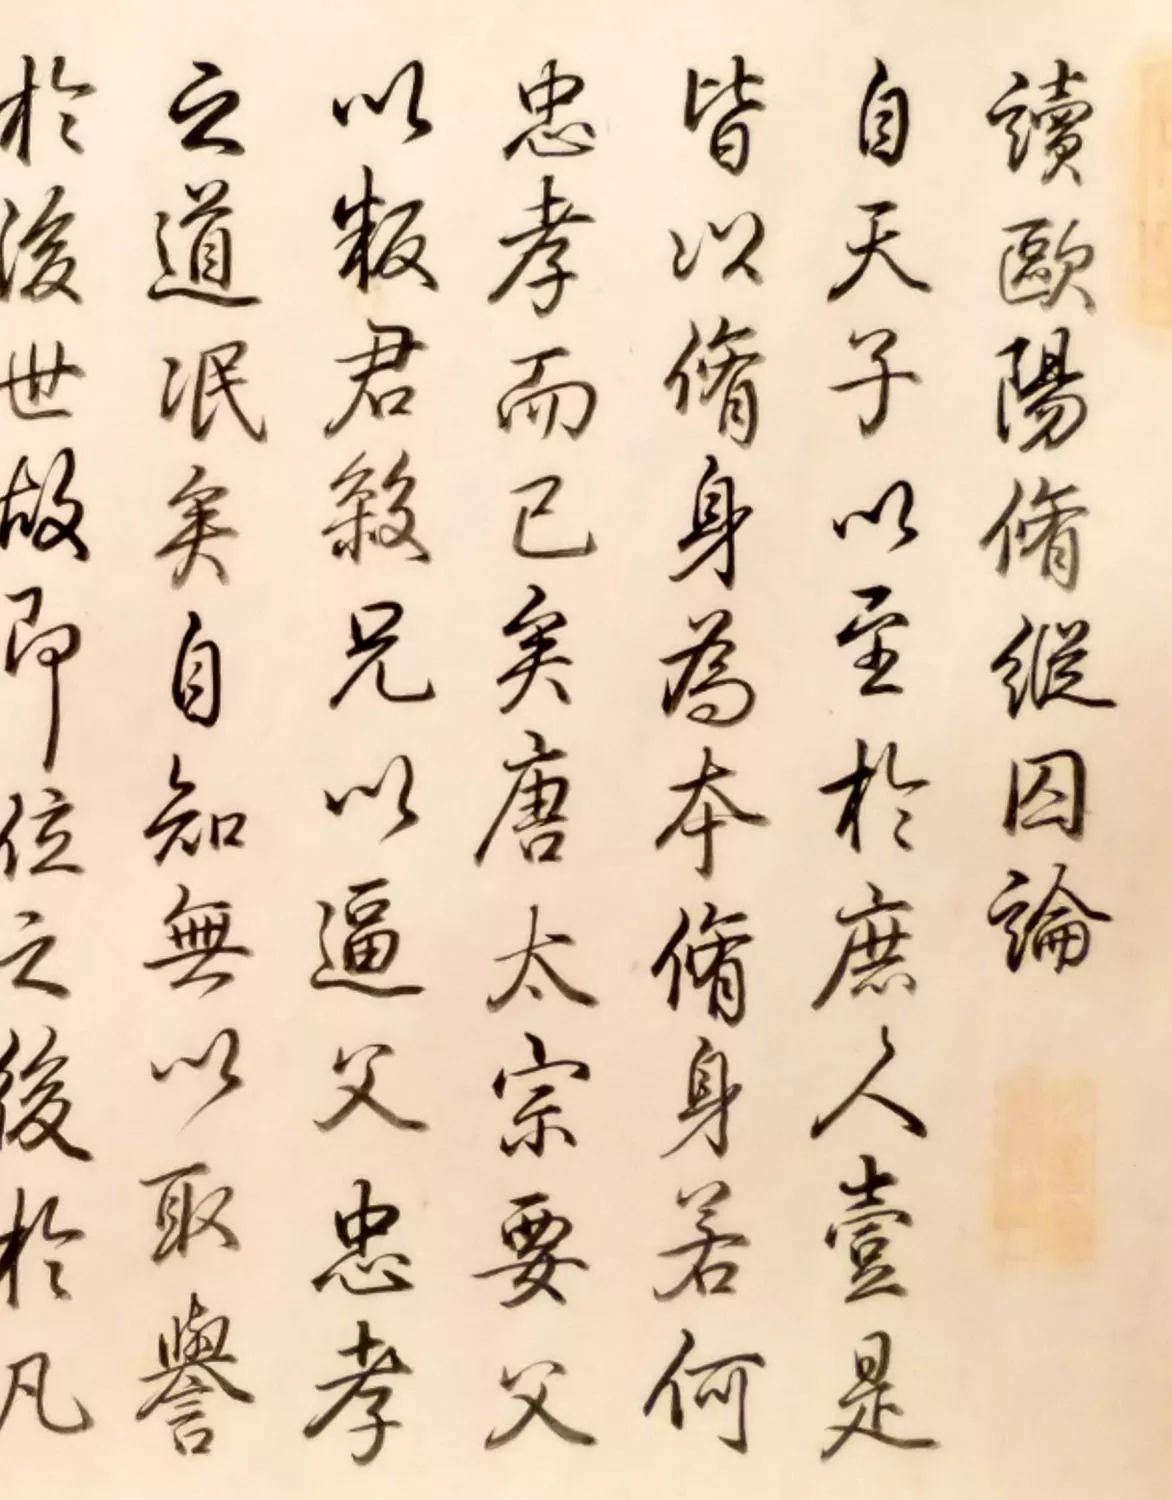 讀歐陽脩縱囚論
自天子以至於庶人壹是
皆以脩身為本脩身若何
忠孝而已矣唐太宗要父
以叛君殺兄以逼父忠孝
之道泯矣自知無以取譽
於後世故即位之後於凡